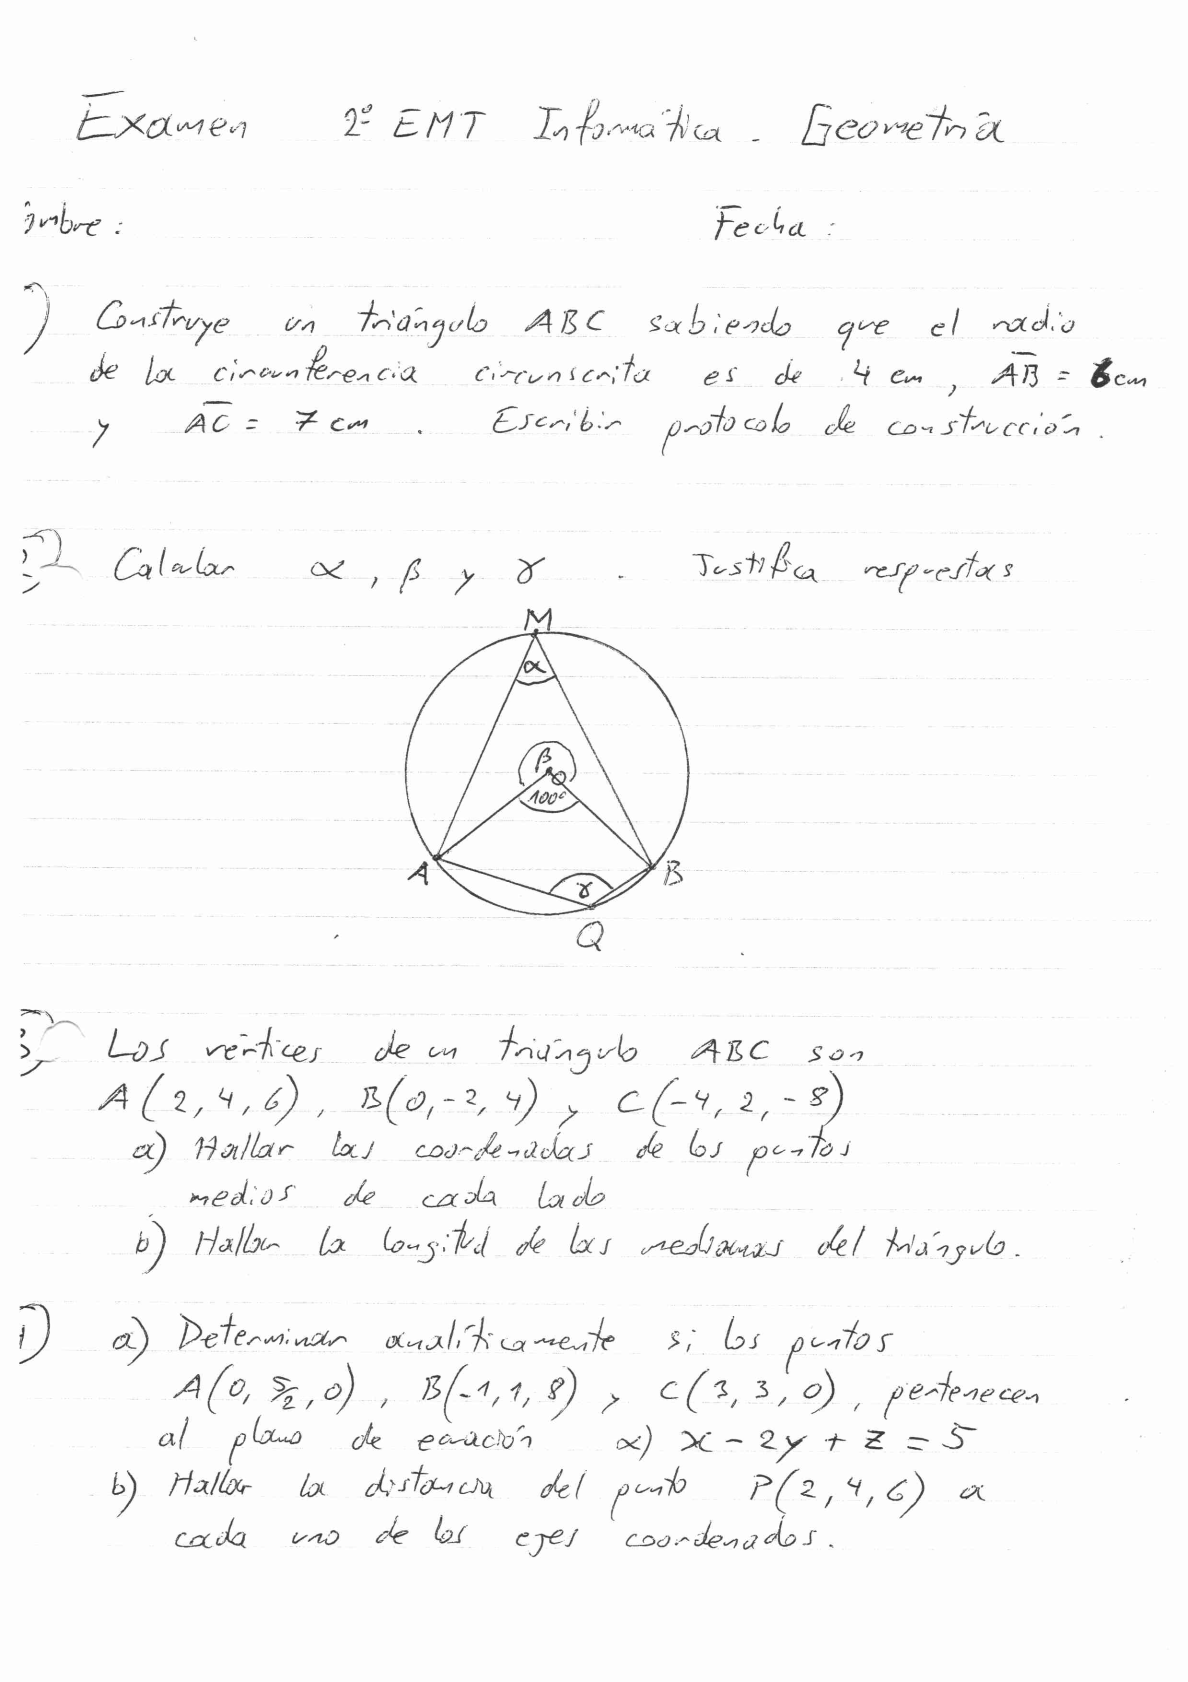 Examen 2º EMT Informática. Geometría
ombre: Fecha:
) Construye un triángulo ABC sabiendo que el radio
de la circunferencia circunscrita es de 4 cm, AB = 6cm
y AC = 7 cm. Escribir protocolo de construcción.
2) Calcular α, β y γ. Justifica respuestas
M
α
β
O
100º
A
B
γ
Q
3) Los vértices de un triángulo ABC son
A(2,4,6), B(0,-2,4) y C(-4,2,-8)
a) Hallar las coordenadas de los puntos
medios de cada lado
b) Hallar la longitud de las medianas del triángulo.
) a) Determinar analíticamente si los puntos
A(0, 5/2, 0), B(-1,1,8) y C(3,3,0), pertenecen
al plano de ecuación α) x - 2y + z = 5
b) Hallar la distancia del punto P(2,4,6) a
cada uno de los ejes coordenados.